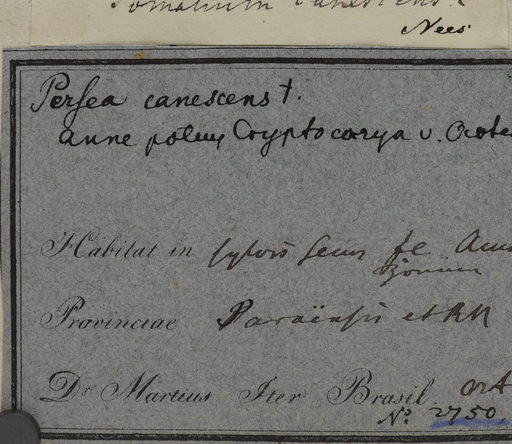 canescens.
Nees
Persea canescens †.
anne potius Cryptocarya v. Ocotea
Habitat in sylvis secus fl. Ama
zonum
Provinciae Paraënsis et RN
Dr. Martius Iter Brasil. Oct
No. 2750.